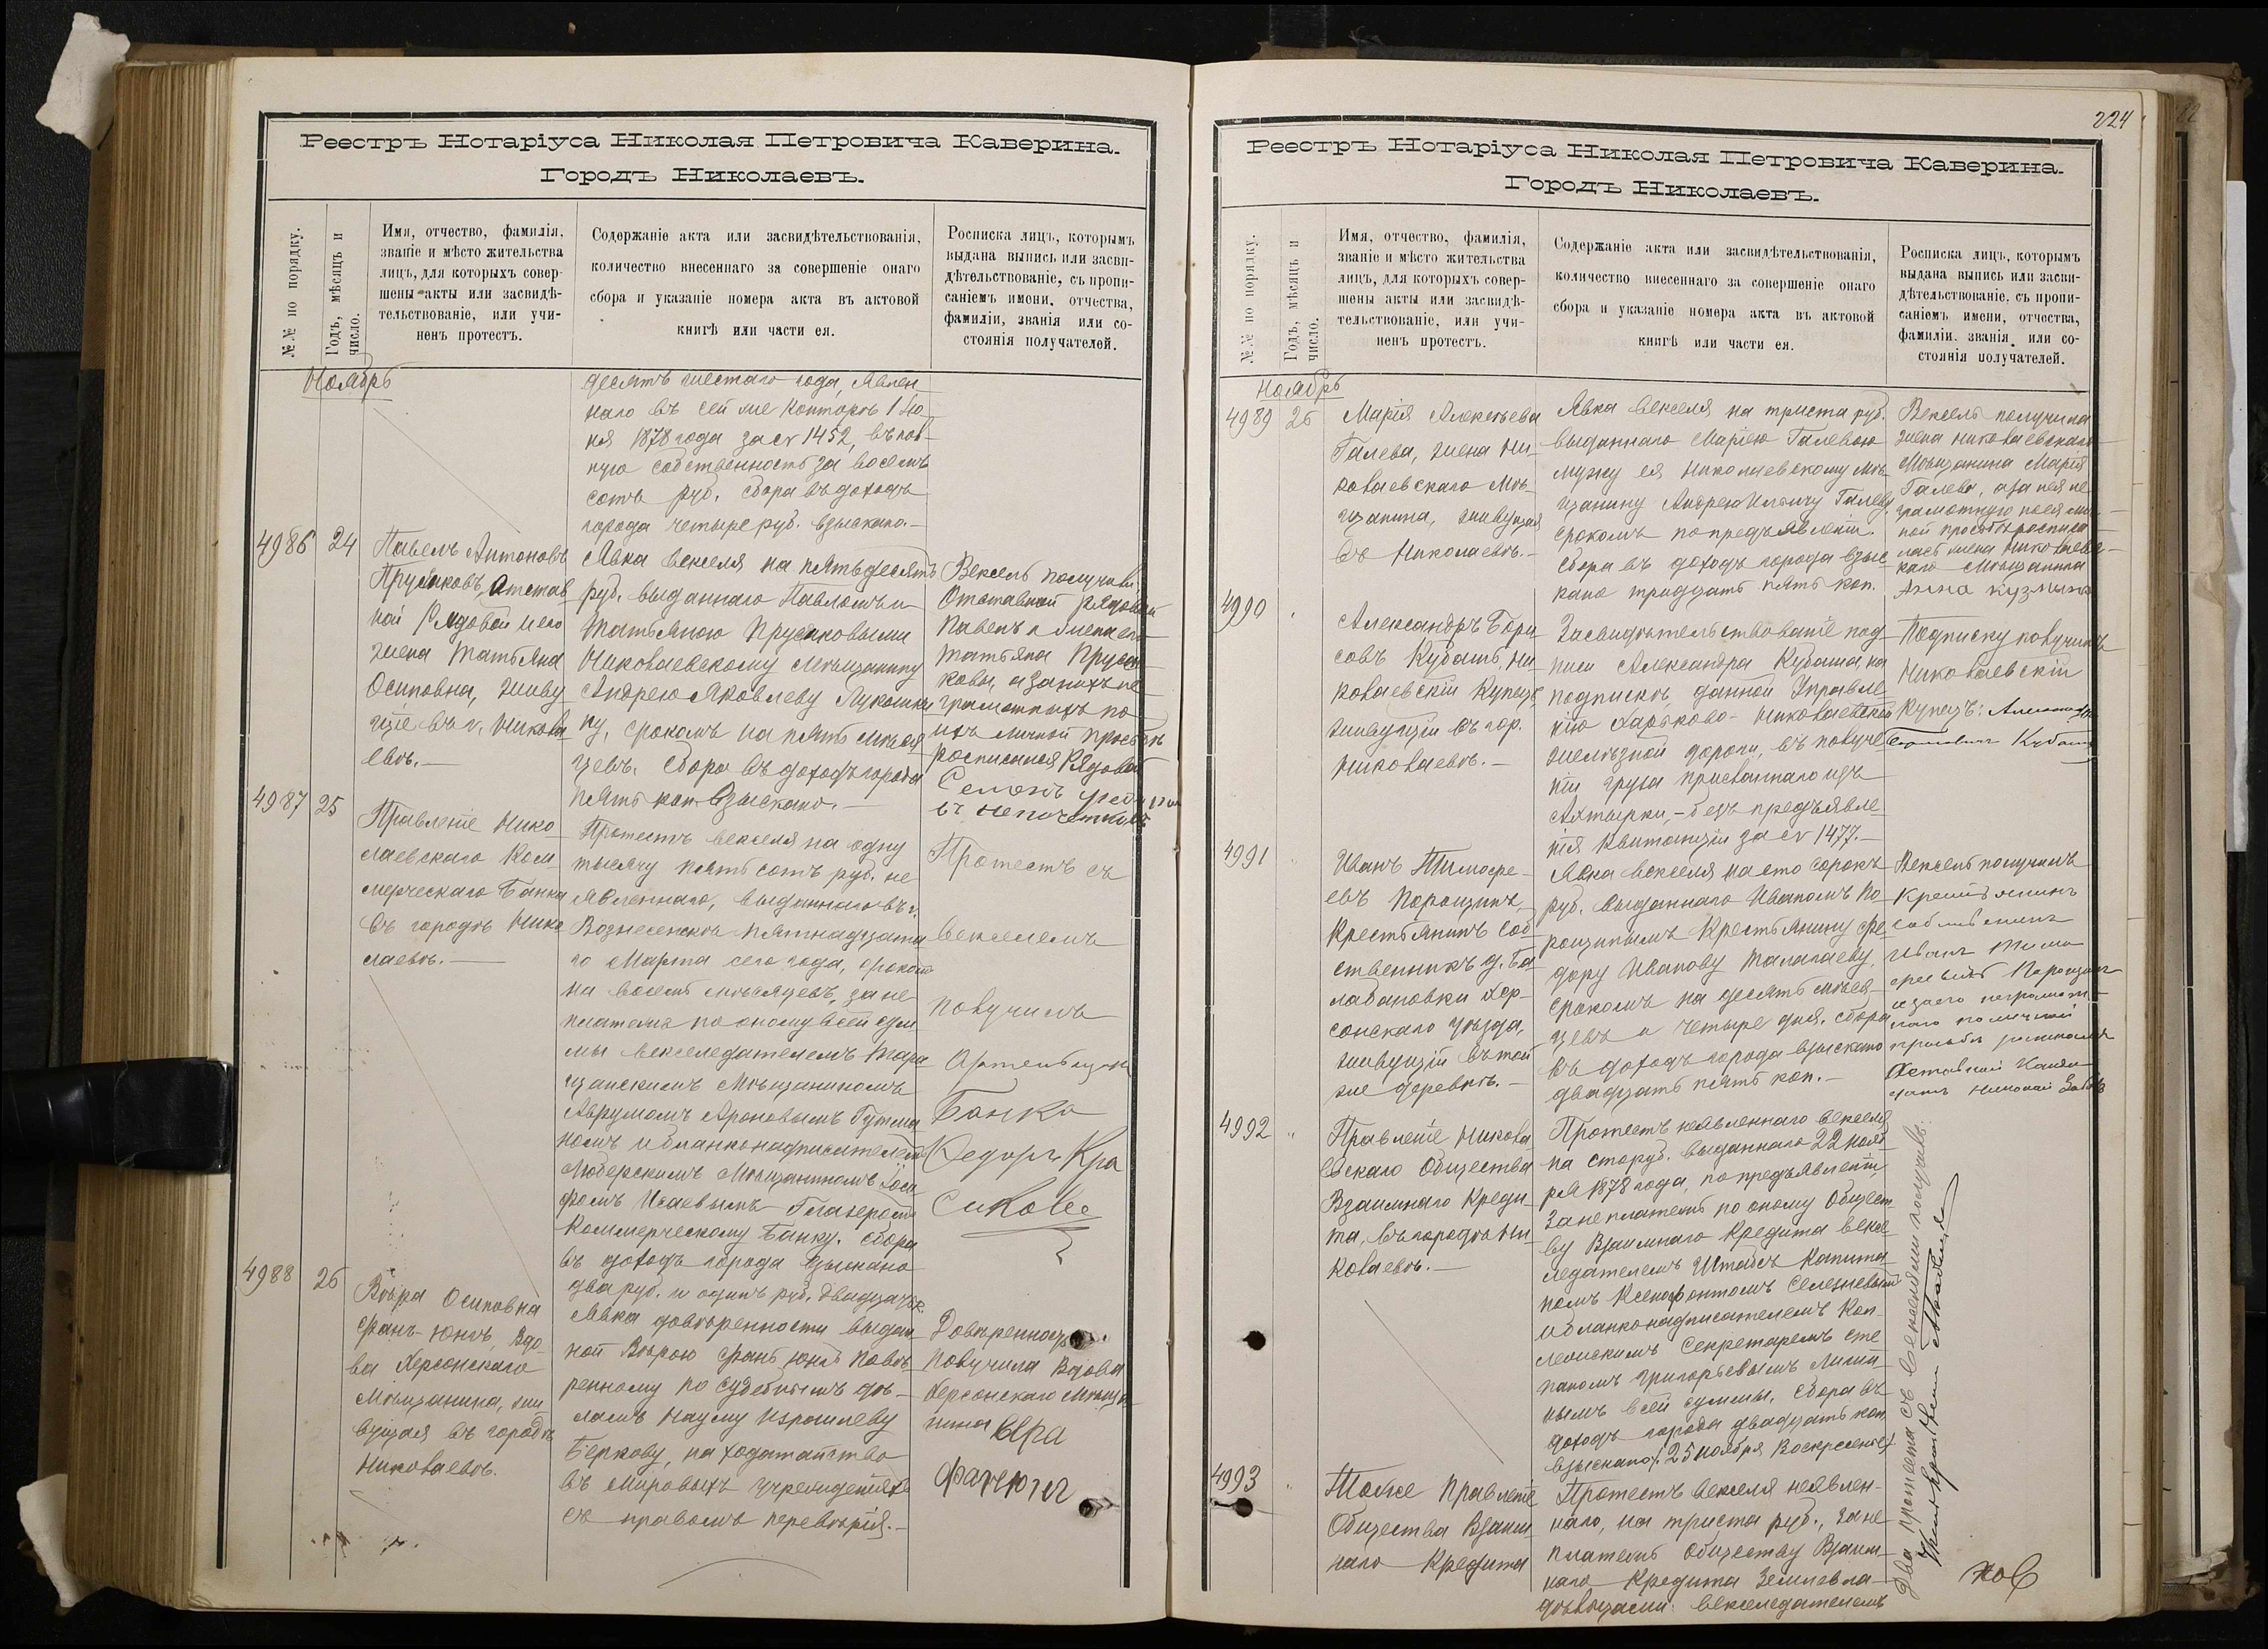 Реестръ Нотаріуса Николая Петровича Каверина.
Городъ Николаевъ.
№№ по порядку.
Годъ, мѣсяцъ и
число.
Имя, отчество, фамилія,
званіе и мѣсто жительства
лицъ, для которыхъ совер-
шены акты или засвидѣ-
тельствованіе, или учи-
ненъ протестъ.
Содержаніе акта или засвидѣтельствованія,
количество внесеннаго за совершеніе онаго
сбора и указаніе номера акта въ актовой
книгѣ или части ея.
Росписка лицъ, которымъ
выдана выпись или засви-
дѣтельствованіе, съ пропи-
саніемъ имени, отчества,
фамиліи, званія или со-
стоянія получателей.
Ноябрь
десятъ шестаго года, явлен
наго въ сей же Конторѣ 1 Iю
ня 1878 года за № 1452, въ пол-
ную собственность за восемь
сотъ руб. сбора въ доходъ
города четыре руб. взыскано.—
4986 24
Павелъ Антоновъ
Прусаковъ, отстав
ной Рядовой и его
жена Татьяна
Осиповна, живу
щіе въ г. Никола
евѣ.—
Явка векселя на пятьдесятъ
руб. выданнаго Павломъ и
Татьяною Прусаковыми
Николаевскому мѣщанину
Андрею Яковлеву Лукошки
ну, срокомъ на пять мѣся
цевъ. Сбора въ доходъ города
пять коп. взыскано.—
Вексель получили
Отставной рядовой
Павелъ и жена его
Татьяна Пруса
ковы, а за нихъ не
грамотныхъ по
ихъ личной просьбѣ
росписался Рядовой
Семенъ
4987 25
Правленіе Нико
лаевскаго Ком-
мерческаго Банка
въ городѣ Нико
лаевѣ.—
Протестъ векселя на одну
тысячу пять сотъ руб. не
явленнаго, выданнаго въ г.
Вознесенскѣ пятнадцата
го Марта сего года, срокомъ
на восемь мѣсяцевъ, за не
платежъ по оному всей сум
мы векселедателемъ Тара
щанскимъ Мѣщаниномъ
Аврумомъ Ароновымъ Гутма
номъ и бланконадписателемъ
Любарскимъ Мѣщаниномъ Iоси
фомъ Исаевымъ Глазеромъ
Коммерческому Банку. Сбора
въ доходъ города взыскано
два руб. и одинъ руб. двадцать к.
Протестъ съ
векселемъ
получилъ
Артельщик
Банка
Федоръ Кра
сиковъ
4988 26
Вѣра Осиповна
Фанъ-Юнгъ, Вдо
ва Херсонскаго
Мѣщанина, жи
вущая въ городѣ
Николаевѣ.
Явка довѣренности выдан
ной Вѣрою Фанъ Юнгъ повѣ
ренному по судебнымъ дѣ-
ламъ Науму Израилеву
Беркову, на ходатайство
въ Мировыхъ учрежденіяхъ
съ правомъ перевѣрія.—
Довѣренность
получила Вдова
Херсонскаго Мѣща
нина Вѣра
Фанюнг
224
Реестръ Нотаріуса Николая Петровича Каверина.
Городъ Николаевъ.
№№ по порядку.
Годъ, мѣсяцъ и
число.
Имя, отчество, фамилія,
званіе и мѣсто жительства
лицъ, для которыхъ совер-
шены акты или засвидѣ-
тельствованіе, или учи-
ненъ протестъ.
Содержаніе акта или засвидѣтельствованія,
количество внесеннаго за совершеніе онаго
сбора и указаніе номера акта въ актовой
книгѣ или части ея.
Росписка лицъ, которымъ
выдана выпись или засви-
дѣтельствованіе, съ пропи-
саніемъ имени, отчества,
фамиліи, званія, или со-
стоянія получателей.
Ноябрь
4989 26
Марія Алексѣева
Галева, жена Ни-
колаевскаго Мѣ-
щанина, живущая
въ Николаевѣ.—
Явка векселя на триста руб.
выданнаго Маріею Галевою
мужу ея Николаевскому Мѣ
щанину Андрею Ильичу Галеву,
срокомъ по предъявленіи.
Сбора въ доходъ города взыс
кано тридцать пять коп.
Вексель получила
жена николаевскаго
Мѣщанина Марія
Галева, а за нея не
грамотную по ея лич
ной просьбѣ росписа
лась жена Николаевс
каго Мѣщанина
Анна Кузмина
4990
Александръ Бори
совъ Кубашъ, Ни
колаевскій Купецъ,
живущій въ гор.
Николаевѣ.—
Засвидѣтельствованіе под
писи Александра Кубаша, на
подпискѣ, данной Управле
нію Харьково-Николаевской
желѣзной дороги, въ получе
ніи груза присланнаго изъ
Ахтырки,- безъ предъявле
нія квитанціи за № 1477.—
Подписку получилъ
Николаевскій
Купецъ: Александръ
Борисовичъ Кубашъ
4991
Иванъ Тимофе-
евъ Порощинъ,
Крестьянинъ соб
ственникъ д. Ба-
лабановки Хер-
сонскаго уѣзда,
живущій въ той
же деревнѣ.—
Явка векселя на сто сорокъ
руб. выданнаго Иваномъ По
рощинымъ Крестьянину Фе
дору Иванову Талалаеву,
срокомъ на десять мѣся-
цевъ и четыре дня. сбора
въ доходъ города взыскано
двадцать пять коп.—
Вексель получилъ
Крестьянинъ
собственникъ
Иванъ Тимо
феевъ Порощинъ
а за его неграмот-
наго по личной
просьбѣ росписался
Отставной
Николай
4992
Правленіе Никола
евскаго Общества
Взаимнаго Креди-
та, въ городѣ Ни-
колаевѣ.—
Протестъ неявленнаго векселя
на сто руб. выданнаго 22 нояб
ря 1878 года, по предъявленіи,
за неплатежъ по оному Общест
ву Взаимнаго Кредита вексе
ледателемъ Штабсъ Капита
номъ Ксенофонтомъ Селезневымъ
и бланконадписателемъ Кол-
лежскимъ Секретаремъ Сте
паномъ Григорьевымъ
нымъ всей суммы. Сбора въ
доходъ города двадцать коп.
взыскано /. 25 ноября, Воскресенье ./
4993
Тоже Правленіе
Общества Взаим
наго Кредита
Протестъ векселя неявлен-
наго, на триста руб., за не
платежъ Обществу Взаим-
наго Кредита Землевла-
дѣльцами: векселедателемъ
Два протеста съ векселями получилъ:
ков